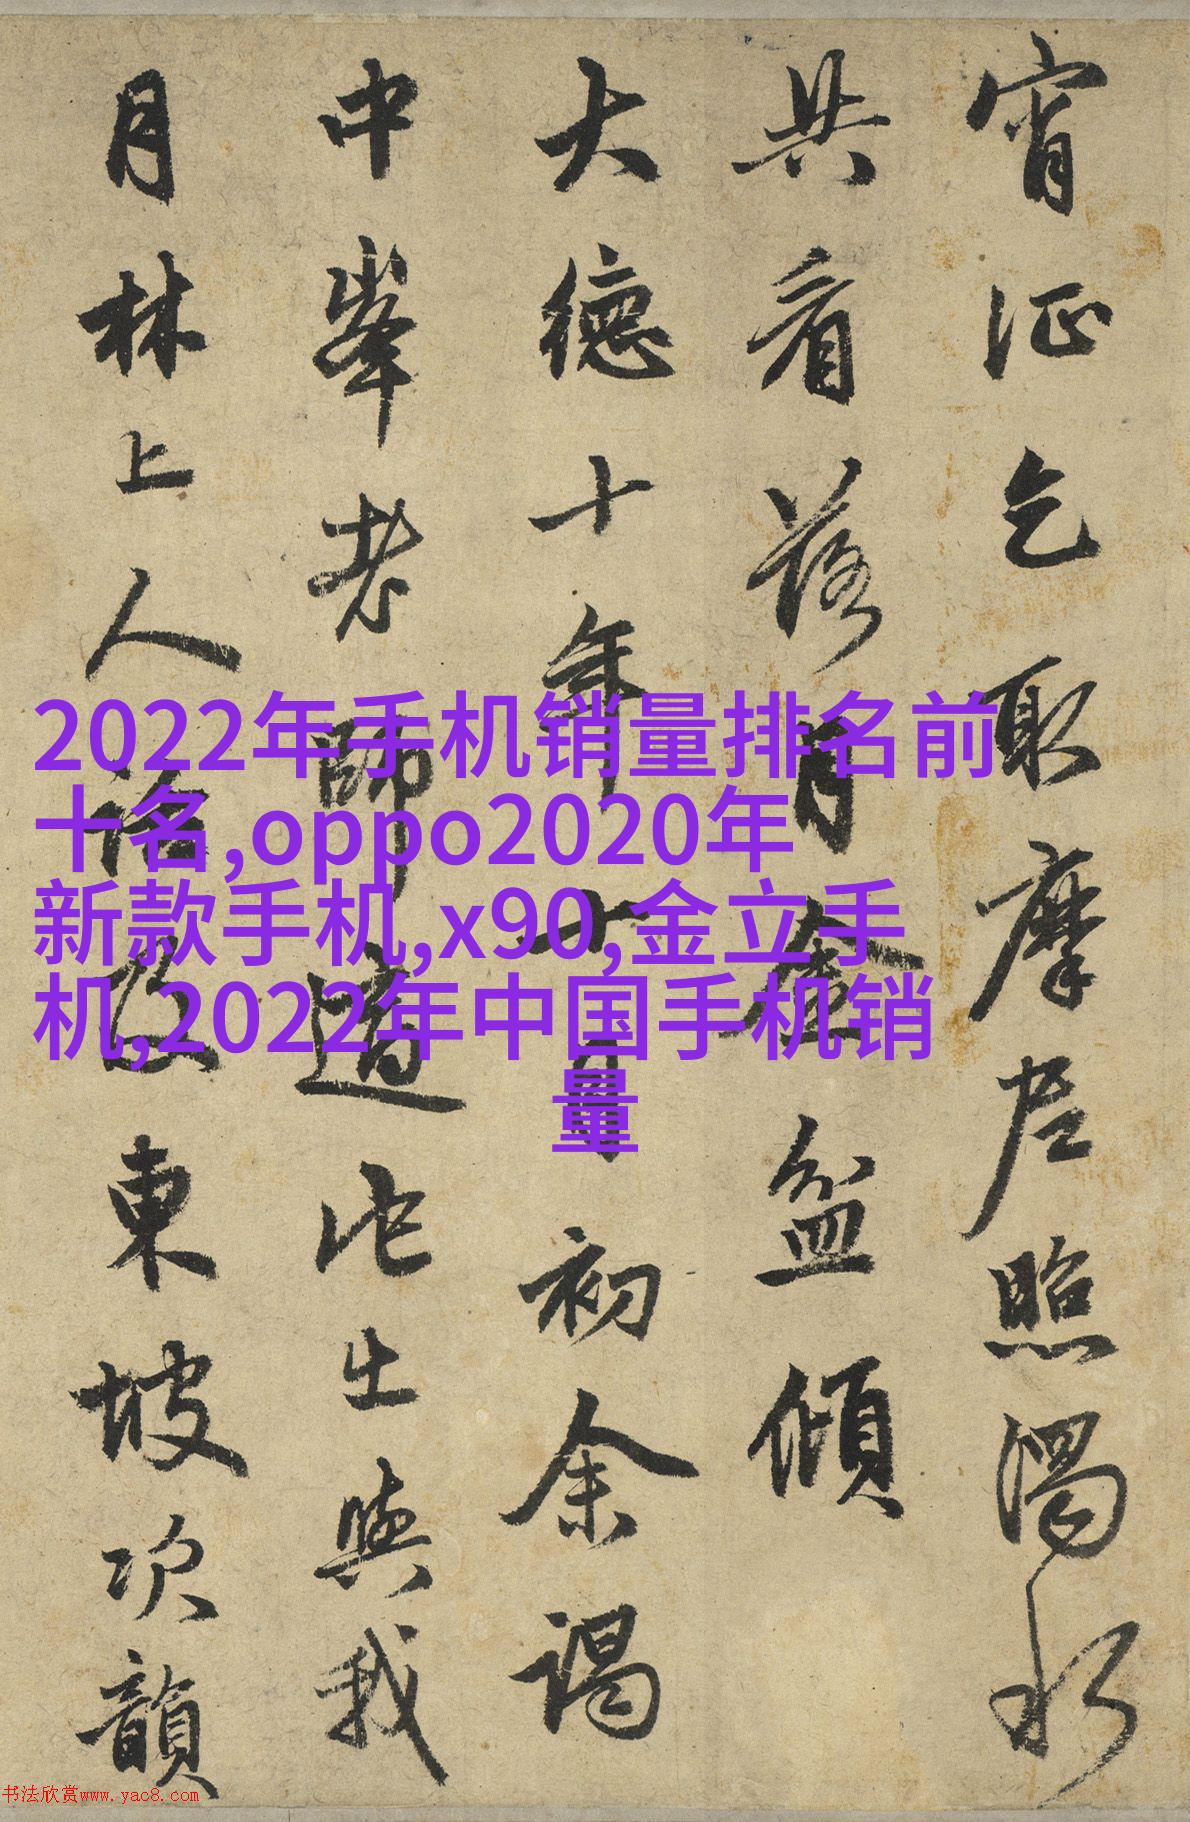 宵征乞取摩尼照濁水
共看落月金盆傾
大德十年十一月初余謁
中峯老師道此出與我
月林上人話及東坡次韻
2022年手机销量排名前
十名,oppo2020年
新款手机,x90,金立手
机,2022年中国手机销
量
书法欣赏www.yac8.com